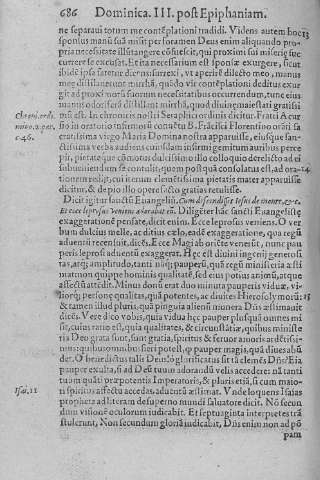 686 Dominica. III. post Epiphaniam.
ne separaui totum me contẽplationi tradidi. Videns autem hoc
sponsus manũ suã misit per foramen Deus enim aliquando pro-
pria necessitate illũ tangere cõsuescit, qui proximi sui miserię suc
currere se excusat. Et ita necessarium est sponsæ exurgere, sicut
ibidẽ ipsa fatetur dicens surrexi, vt aperirẽ dilecto meo, manus
meę distillauerunt mirrhã, quãdo vir contẽplationi deditus exur
git ad proximorũ suorum necessitatibus occurrendum, tunc eius
manus odorifera distillent mirrhã, quod diuinę maiestati gratissi
mũ est. In chronicis nostri Seraphici ordinis dicitur. Fratri A cur
sio in oratorio in
Chroni. ordi
c. 46.
cratissima virgo Maria Domina nostra apparuisse, eiusque san-
ctissima verba audiens cuiusdam inserni clamorem auribus perce
pit, pietate que cõmotus dulcissimo illo colloquio derelicto ad ei
subueniendum se contulit, quem postquã consolatus est, ad ora-
tionem redijt, cui iterum clemẽtissima pietatis mater apparuisse
dicitur, & de pio illo opere facto gratias retulisse.
Dicit igitur sanctũ Euangeliũ, Cum descendisset Iesus de monte, &c.
Et ecce leprosus veniens adorabat eũ. Diligẽter hãc sancti Euangelistę
exaggerationẽ ponderate, dicentis. Ecce leprosus veniens. O ver
bum dulcius melle, ac ditius cælo, eadẽ exaggeratione, qua regũ
aduentũ recensuit, dicẽs. Ecce Magi ab oriẽte venerũt, nunc pau
peris leprosi aduentũ exaggerat. Hęc est diuini ingenij generosi
tas, arq;
matñon quippe hominis qualitatẽ, sed eius potius animũ, atque
affectũ attẽdit. Minus donũ erat duo minuta pauperis viduæ, vi-
liorq; personę qualitas, quã potentes, ac diuites Hierosolymorũ:
& tamen illud pluris, quã pinguia aliorũ munera Dñs æstimauit
dicẽs. Vere dico vobis, quia vidua hęc pauper plusquã omnes mi
sit, cuius ratio est, quia qualitates, & circunstãtiæ, quibus ministe
ris Deo grata sunt, sunt gratia, spiritus & feruor amoris ardẽtissi-
mus: quibus omnibus fieri potest, q pauper magis, quã diues abũ
det. O benedictus talis Deus, ò glorificatus sit tã clemẽs Dñs! Eia
pauper exulta, si ad Deũ tuum adorandũ velis accedere: nã tanti
tuam quãti præpotentis Imperatoris, & pluris etiã, si cum maio-
Isai. 11
ri spiritus affectu accedas, aduentũ æstimat. Vnde loquens Isaias
propheta ad literam de superno mundi saluatore dicit. Nõ secun
dum visionẽ oculorum iudicabit. Et septuaginta interpretes trã
stulerunt, Non secundum gloriã iudicabit, Dñs enim non ad põ
pam